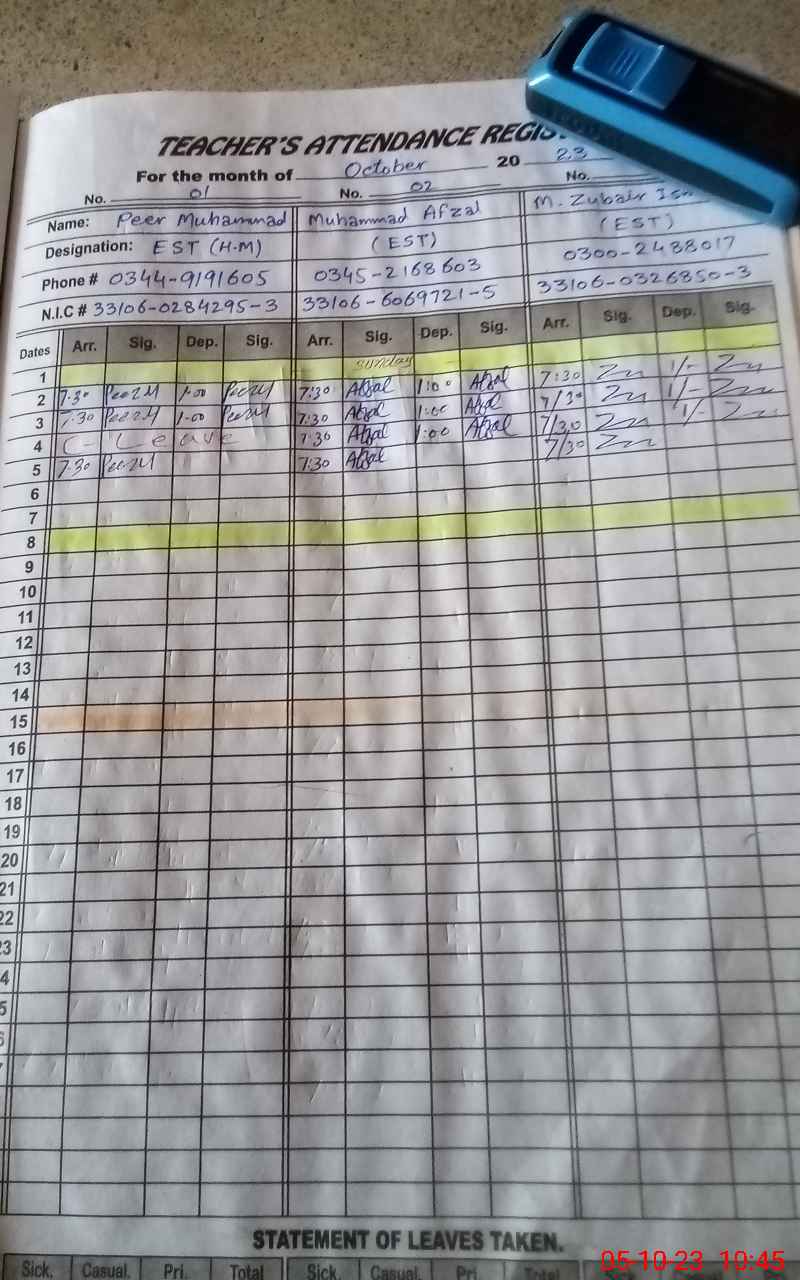 TEACHER'S ATTENDANCE REGIS
For the month of October 20 23
No. 01 No. 02 No.
Name: Peer Muhammad Muhammad Afzal M. Zubair
Designation: EST (H.M) (EST) (EST)
Phone # 0344-9191605 0345-2168603 0300-2488017
N.I.C # 33106-0284295-3 33106-6069721-5 33106-0326850-3
Dates Arr. Sig. Dep. Sig. Arr. Sig. Dep. Sig. Arr. Sig. Dep. Sig.
1 Sunday
2 7.30 1.00 7:30 Afzal 1:00 Afzal 7:30 1/-
3 7.30 1.00 7:30 Afzal 1:00 Afzal 7/30 1/-
4 C-Leave 7:30 Afzal 1:00 Afzal 7/30 1/-
5 7.30 7:30 Afzal 7/30
6
7
8
9
10
11
12
13
14
15
16
17
18
19
20
21
22
23
4
5
STATEMENT OF LEAVES TAKEN.
Sick. Casual. Pri. Total Sick. Casual. Pri. Total
05-10-23 10:45